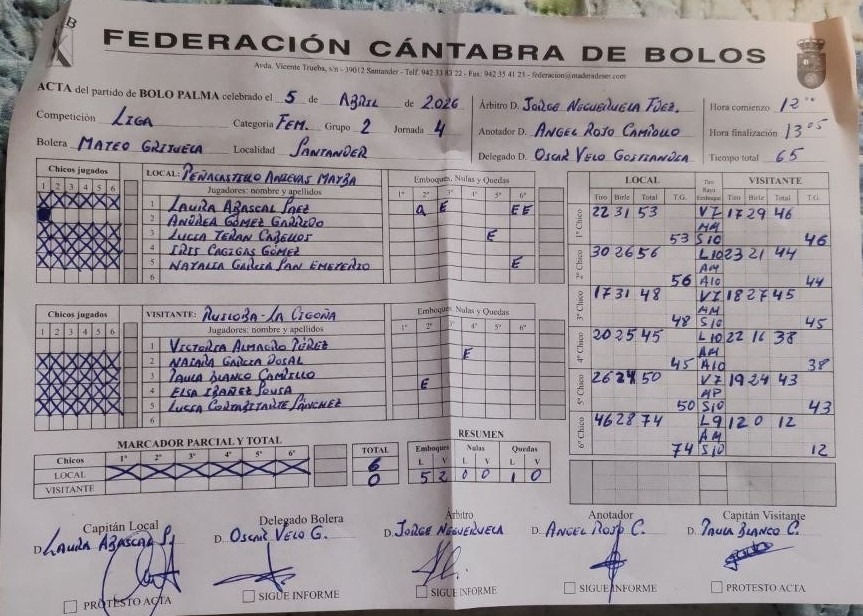 FEDERACIÓN CÁNTABRA DE BOLOS
Avda. Vicente Trueba, s/n - 39012 Santander - Telf. 942 33 83 22 - Fax: 942 35 41 21 - federacion@maderadeser.com
ACTA del partido de BOLO PALMA celebrado el 5 de ABRIL de 2026
Árbitro D. JORGE NEGUERUELA FDEZ. Hora comienzo 12 00
Competición LIGA Categoria FEM. Grupo 2 Jornada 4
Anotador D. ANGEL ROJO CAMIOLLO Hora finalización 13 05
Bolera MATEO GRIJUELA Localidad SANTANDER
Delegado D. OSCAR VELO GOSTIANDEA Tiempo total 65
Chicos jugados
1 2 3 4 5 6
LOCAL: PEÑACASTILLO ANIEVAS MAYBA
Jugadores: nombre y apellidos
Emboques, Nulas y Quedas
1º 2º 3º 4º 5º 6º
1 LAURA ABASCAL SAEZ Q E EE
2 ANDREA GOMEZ GARRIDO
3 LUCIA TERAN CABELLOS E
4 IRIS CAGIGAS GÓMEZ
5 NATALIA GARCIA SAN EMETERIO E
6
Chicos jugados
1 2 3 4 5 6
VISITANTE: RUILOBA-LA CIGOÑA
Jugadores: nombre y apellidos
Emboques, Nulas y Quedas
1º 2º 3º 4º 5º 6º
1 VICTORIA ALMAGRO PÉREZ
2 NAIARA GARCIA DOSAL E
3 PAULA BLANCO CAMIOLLO
4 ELSA IBAÑEZ SOUSA E
5 LUCIA CORTABITARTE SÁNCHEZ
6
LOCAL VISITANTE
Tiro Birle Total T.G. Tiro Raya Emboque Tiro Birle Total T.G.
1º Chico 22 31 53 V7 17 29 46
MM
53 S10 46
2º Chico 30 26 56 L10 23 21 44
AM
56 A10 44
3º Chico 17 31 48 V7 18 27 45
MM
48 S10 45
4º Chico 20 25 45 L10 22 16 38
AM
45 A10 38
5º Chico 26 24 50 V7 19 24 43
MP
50 S10 43
6º Chico 46 28 74 L9 12 0 12
AM
74 S10 12
MARCADOR PARCIAL Y TOTAL
Chicos 1º 2º 3º 4º 5º 6º TOTAL
LOCAL 6
VISITANTE 0
RESUMEN
Emboques Nulas Quedas
L V L V L V
5 2 0 0 1 0
Capitán Local Delegado Bolera Árbitro Anotador Capitán Visitante
D. LAURA ABASCAL S. D. OSCAR VELO G. D. JORGE NEGUERUELA D. ANGEL ROJO C. D. PAULA BLANCO C.
PROTESTO ACTA SIGUE INFORME SIGUE INFORME SIGUE INFORME PROTESTO ACTA